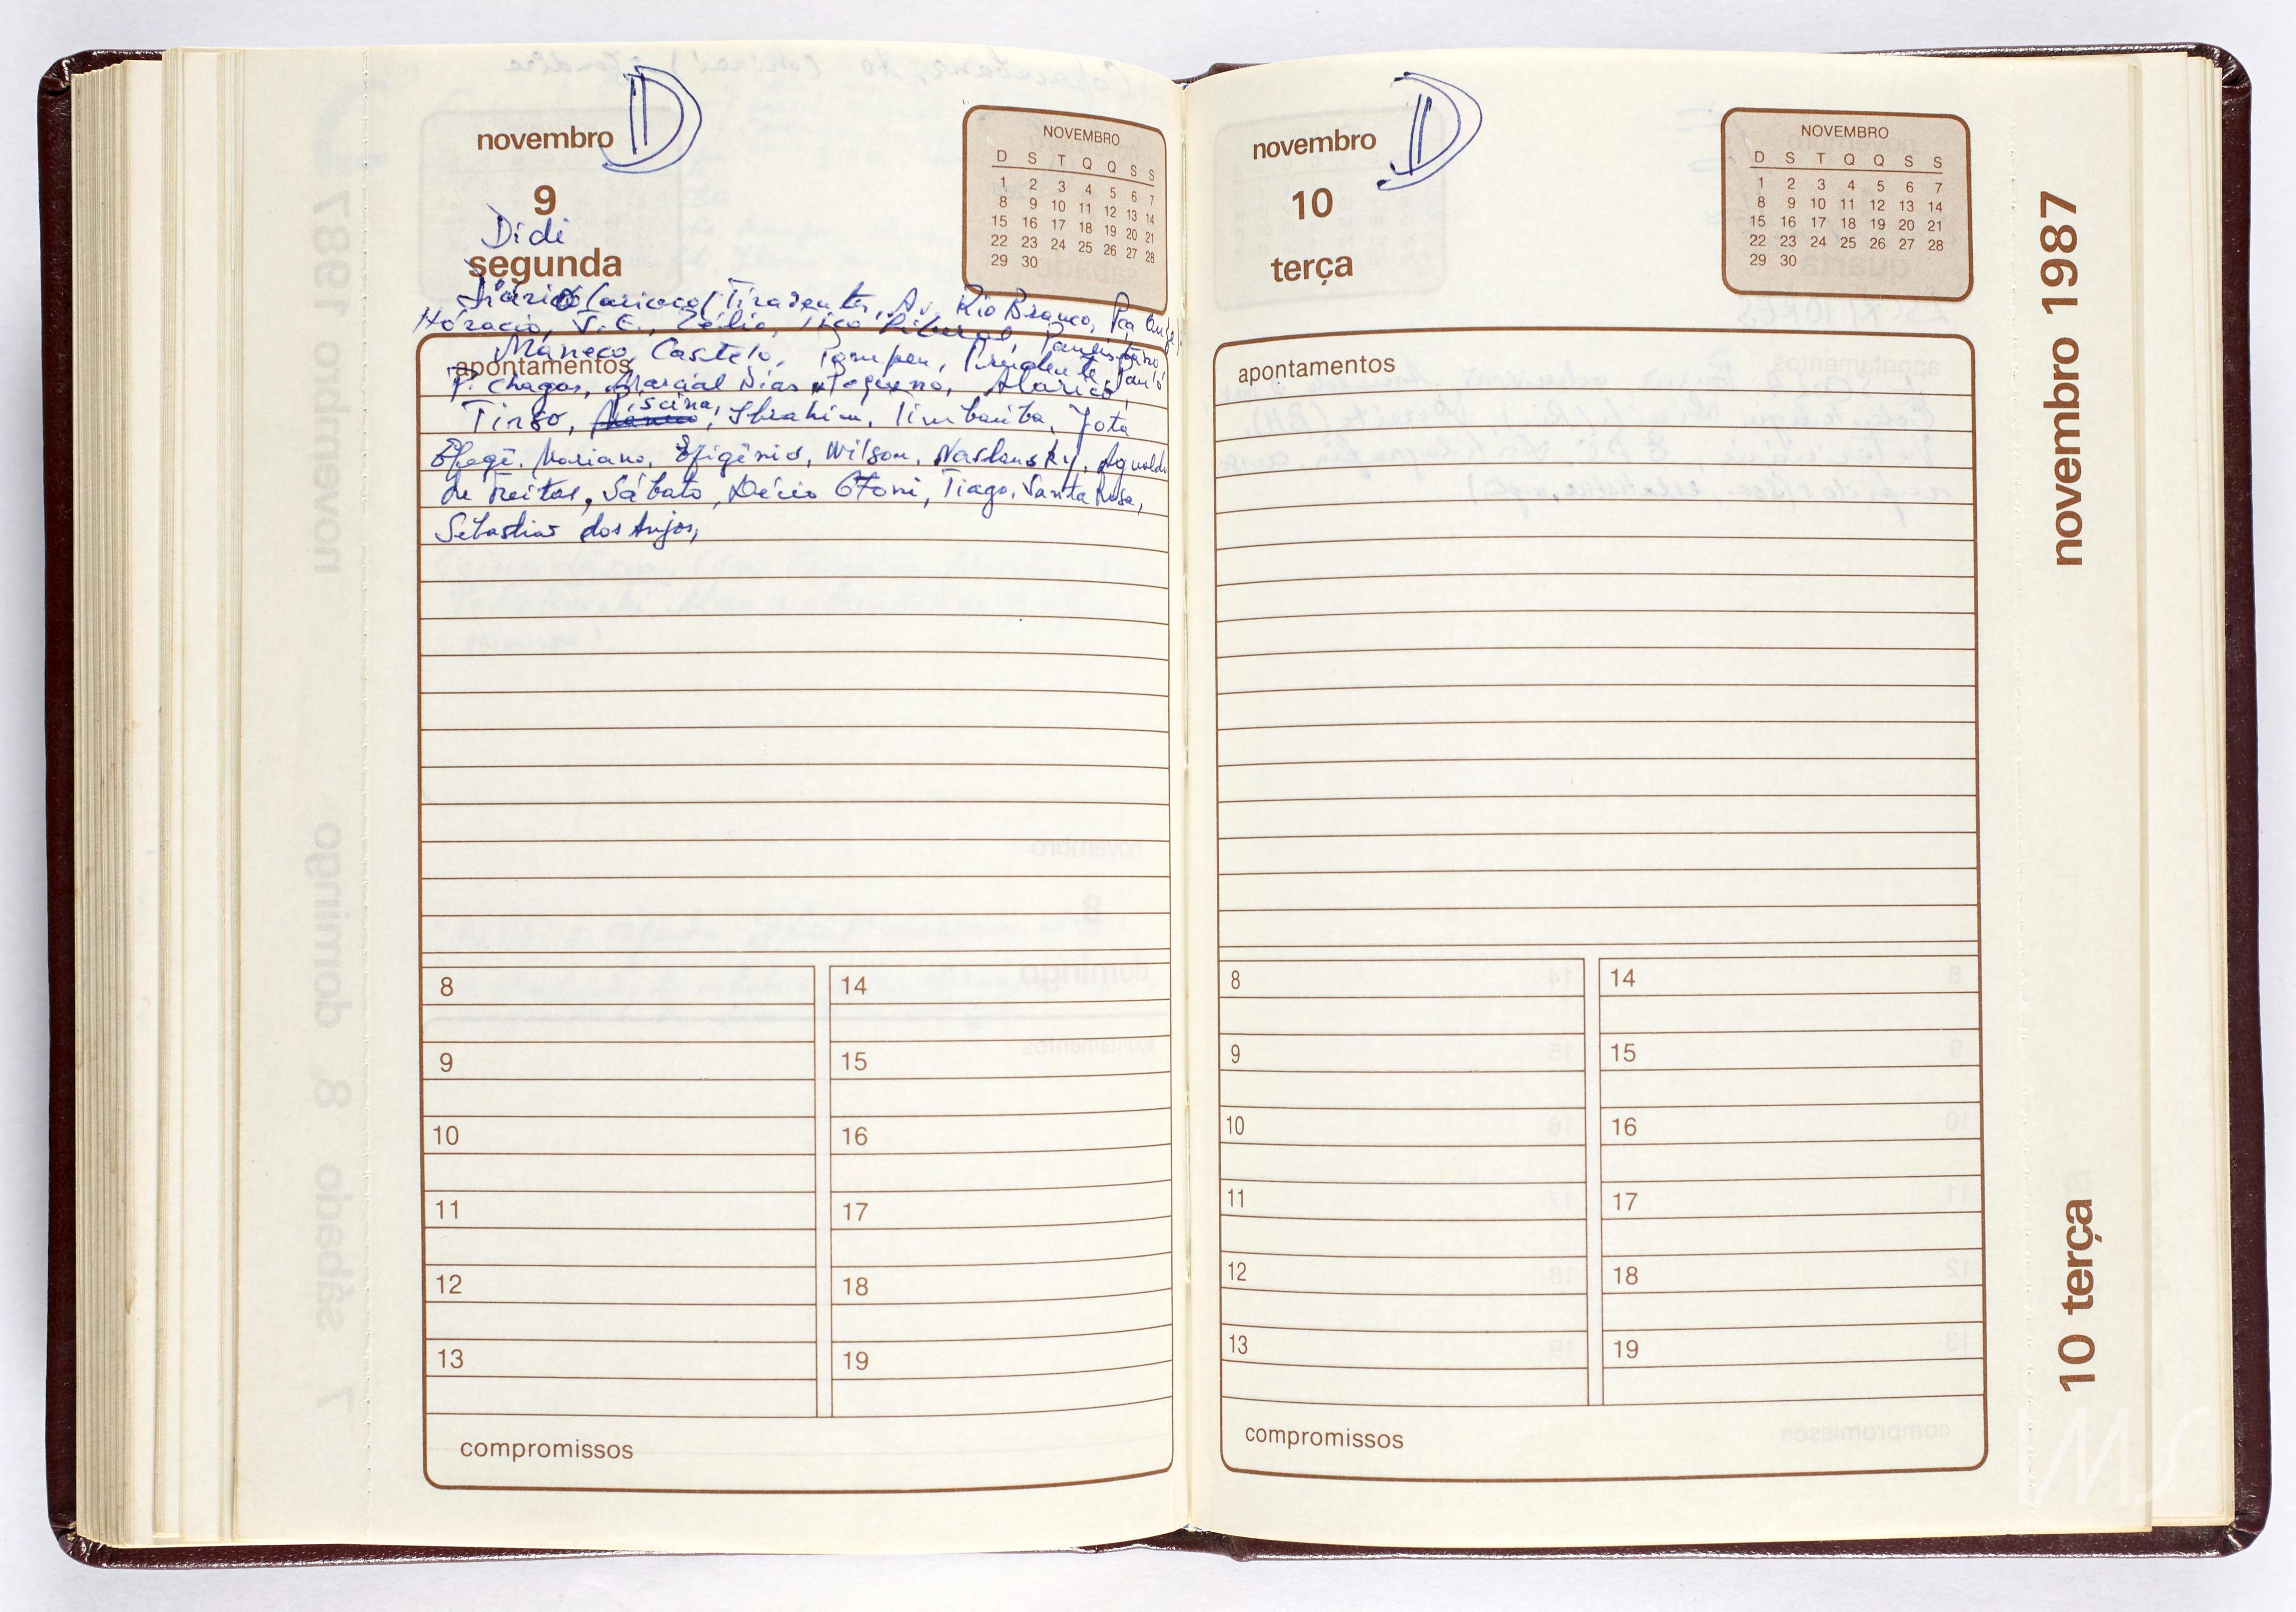 novembro D
9
Didi
segunda
NOVEMBRO
D S T Q Q S S
1 2 3 4 5 6 7
8 9 10 11 12 13 14
15 16 17 18 19 20 21
22 23 24 25 26 27 28
29 30
Diário Carioca (Tiradentes, Av. Rio Branco, Pça Onze).
Horácio, J. E., Zélio,
Maneco, Castelo, Pompeu, Prudente, Paulo
apontamentos
P. Chagas, Marcial Dias Pequeno, Alarico,
Tinso, Piscina, Ibrahim, Timbaúba, Jota
Efegê, Mariano, Efigênio, Wilson, Naslausky, Agnaldo
de Freitas, Sábato, Décio Otoni, Tiago, Santa Rosa,
Sebastião dos Anjos,
8 14
9 15
10 16
11 17
12 18
13 19
compromissos
novembro D
10
terça
NOVEMBRO
D S T Q Q S S
1 2 3 4 5 6 7
8 9 10 11 12 13 14
15 16 17 18 19 20 21
22 23 24 25 26 27 28
29 30
apontamentos
8 14
9 15
10 16
11 17
12 18
13 19
compromissos
novembro 1987
10 terça
IMS